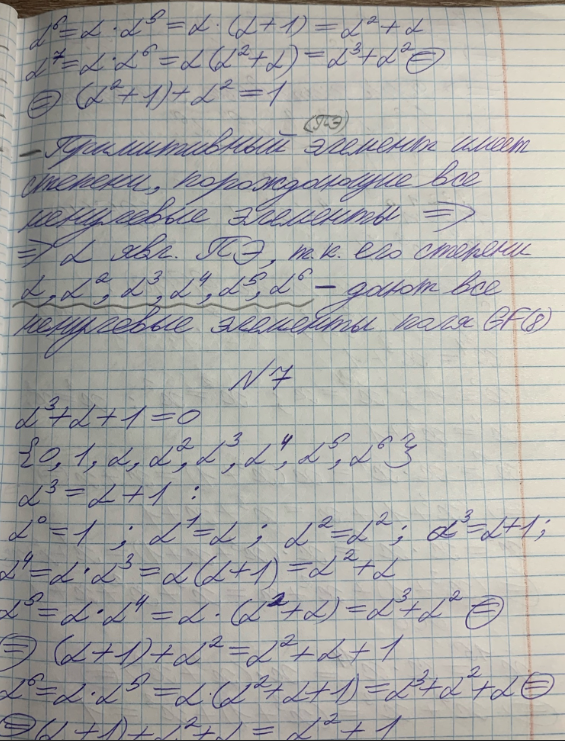 α⁶ = α · α⁵ = α · (α+1) = α² + α
α⁷ = α · α⁶ = α(α² + α) = α³ + α² ⊜
⊜ (α² + 1) + α² = 1
(ПЭ)
– Примитивный элемент имеет
степени, порождающие все
ненулевые элементы ⇒
⇒ α явл. ПЭ, т.к. его степени
α, α², α³, α⁴, α⁵, α⁶ – дают все
ненулевые элементы поля GF(8)
N7
α³ + α + 1 = 0
{0, 1, α, α², α³, α⁴, α⁵, α⁶}
α³ = α + 1 :
α⁰ = 1 ; α¹ = α ; α² = α² ; α³ = α+1 ;
α⁴ = α · α³ = α(α+1) = α² + α
α⁵ = α · α⁴ = α · (α² + α) = α³ + α² ⊜
⊜ (α+1) + α² = α² + α + 1
α⁶ = α · α⁵ = α · (α² + α + 1) = α³ + α² + α ⊜
⊜ (α+1) + α² + α = α² + 1